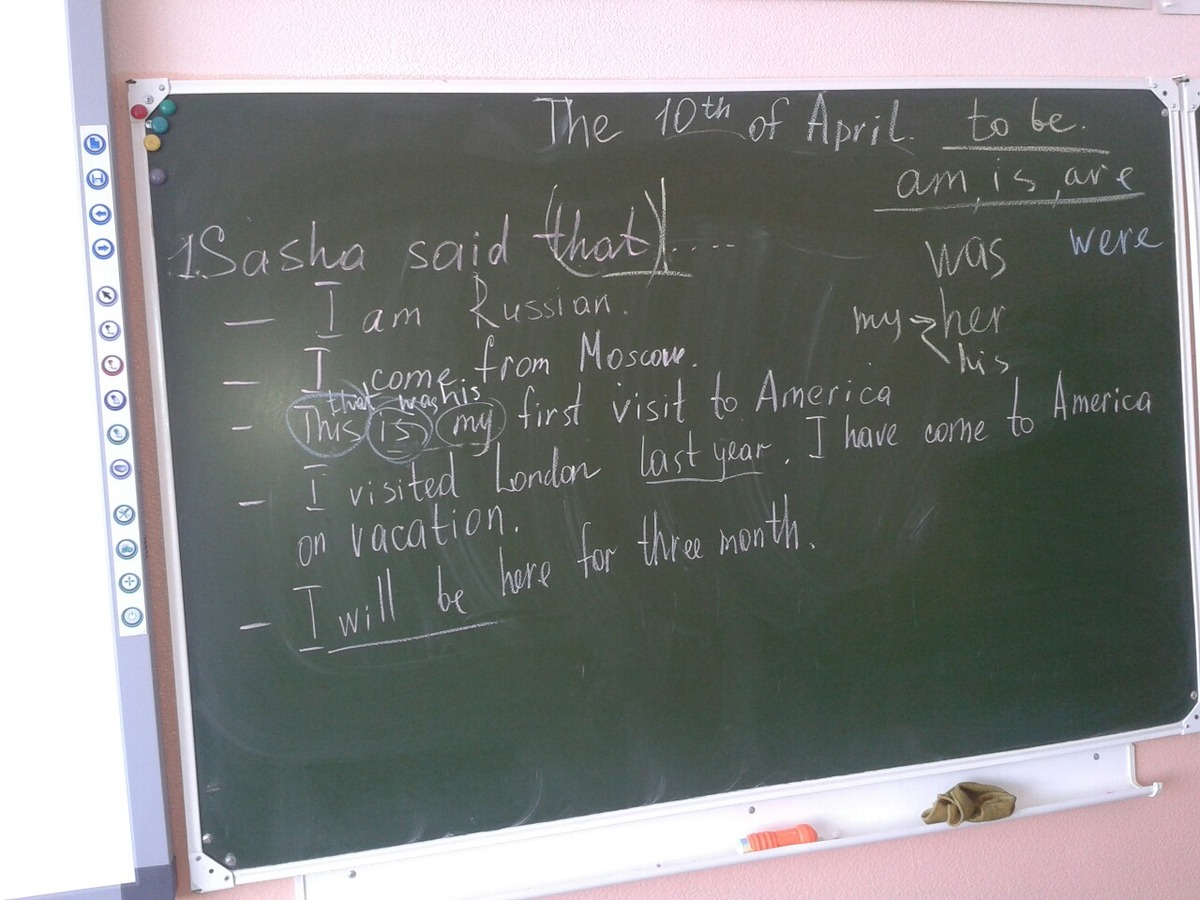 The 10th of April. to be.
am, is, are
was were
1. Sasha said (that) ....
my → her
his
— I am Russian.
— I come from Moscow.
that was his
— This is my first visit to America
— I visited London last year. I have come to America
on vacation.
— I will be here for three month.